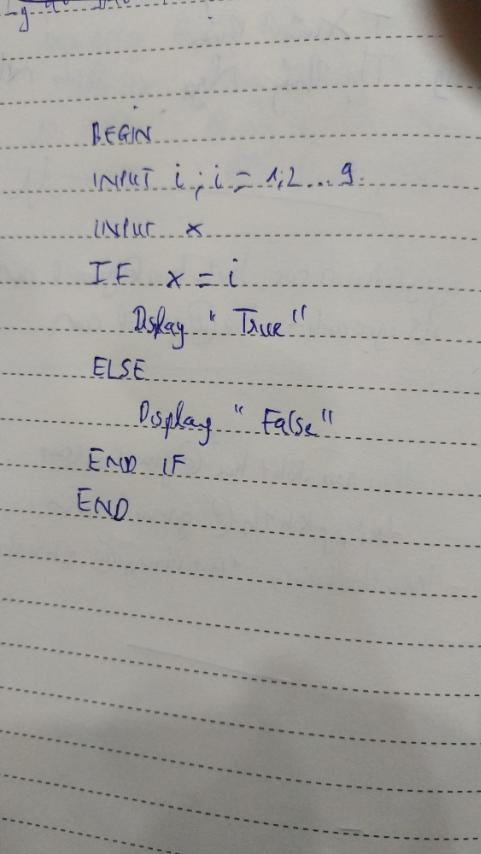 BEGIN
INPUT i ; i = 1,2...9.
INPUT x
IF x = i
Dsplay "True"
ELSE
Display "False"
END IF
END